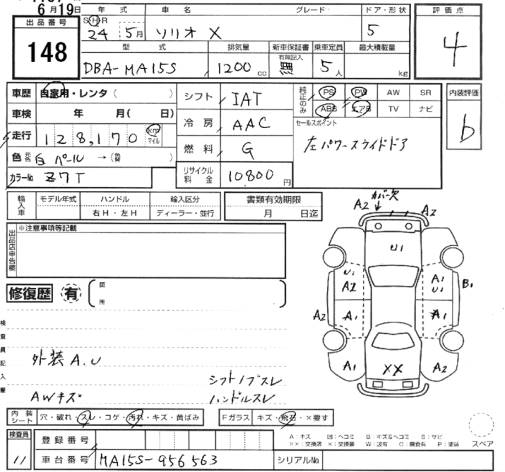 6月19日
SHR 年式 車名 グレード ドア・形状 評価点
出品番号 24 5月 ソリオ X 5
148 型式 排気量 新車保証書 乗車定員 最大積載量 4
DBA-MA15S 1200cc 有限記入 無 5人 kg
車歴 自家用・レンタ( ) シフト IAT 純正のみ PS PW AW SR 内装評価
車検 年 月( 日) 冷房 AAC ABS エアB TV ナビ b
走行 128,170 km マイル セールスポイント
色 白パール →(替 燃料 G 左パワースライドドア
カラーNo Z7T リサイクル料金 10800
輸入車 モデル年式 ハンドル 輸入区分 書類有効期限
右H・左H ディーラー・並行 月 日迄
※注意事項等記載
カバー欠
A2 A2
U1
U1 A1
A2 A1 U1 B1
A2 A1 A1
A1 XX A2
修復歴 有 箇所
検査員記入欄
外装A.U
シフトノブスレ
AWキズ ハンドルスレ
内装シート 穴・破れ・スレ・コゲ・汚れ・キズ・黄ばみ Fガラス キズ・飛石・×要す スペア
検査員 登録番号
11 車台番号 MA15S-956563 シリアルNo